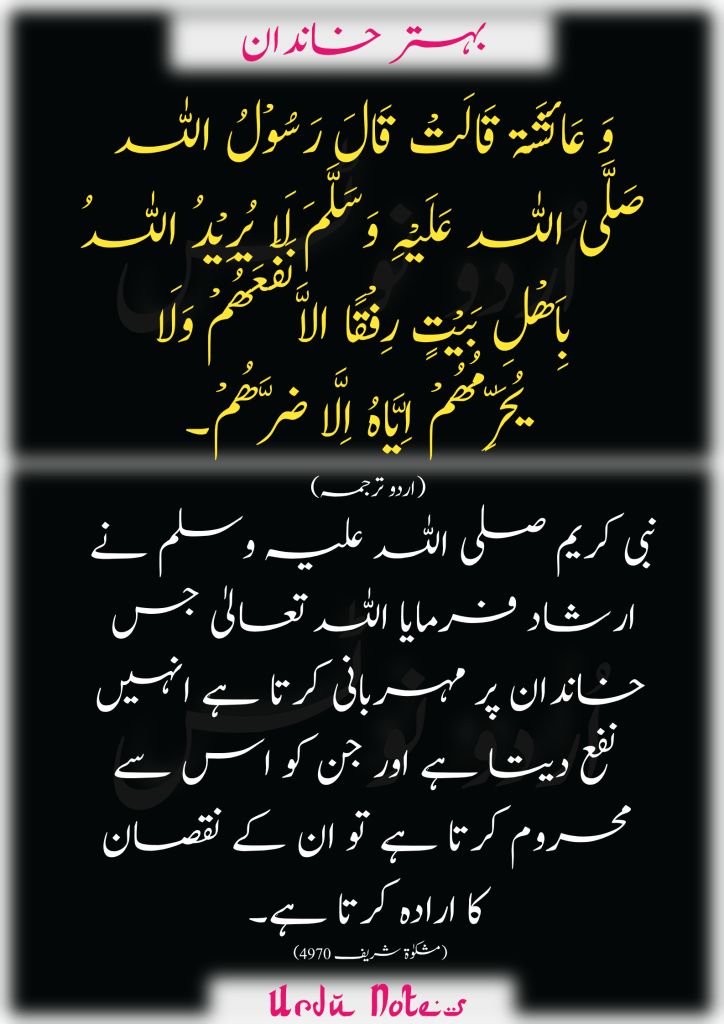 بہتر خاندان
وَ عَائشَۃ قَالَتْ قَالَ رَسُوْلُ اللہ
صَلَّی اللہ عَلَیْہِ وَسَلَّمَ لَا یُرِیْدُ اللہُ
بِاَھْلِ بَیْتٍ رِفْقًا الاَّ نَفَعَھُمْ وَلَا
یُحَرِّمُھُمْ اِیَّاہُ اِلَّا ضرَّھُمْ۔
(اردو ترجمہ)
نبی کریم صلی اللہ علیہ وسلم نے
ارشاد فرمایا اللہ تعالیٰ جس
خاندان پر مہربانی کرتا ہے انہیں
نفع دیتا ہے اور جن کو اس سے
محروم کرتا ہے تو ان کے نقصان
کا ارادہ کرتا ہے۔
(مشکوٰۃ شریف 4970)
Urdu Notes